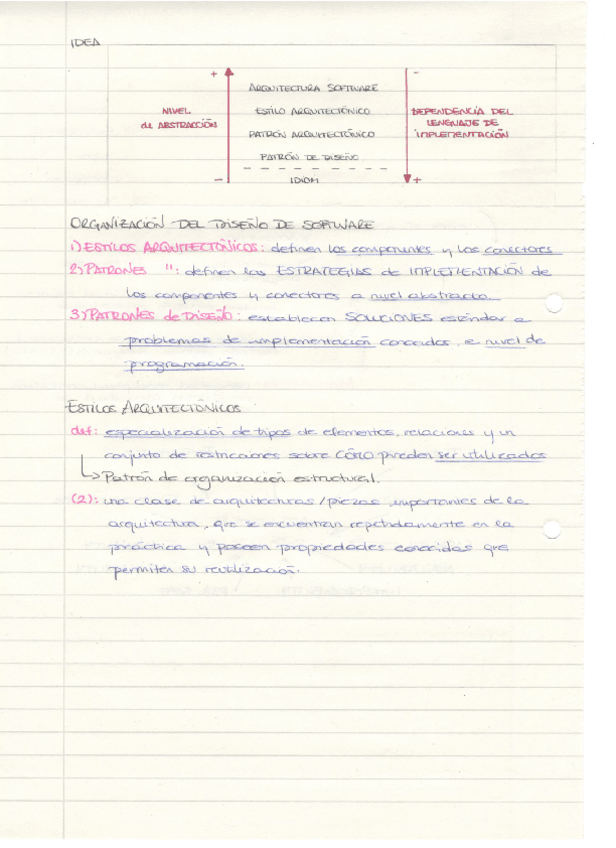 IDEA
+ -
ARQUITECTURA SOFTWARE
NIVEL ESTILO ARQUITECTÓNICO DEPENDENCIA DEL
de ABSTRACCIÓN PATRÓN ARQUITECTÓNICO LENGUAJE DE
IMPLEMENTACIÓN
PATRÓN DE DISEÑO
- IDIOM +
ORGANIZACIÓN DEL DISEÑO DE SOFTWARE
1) ESTILOS ARQUITECTÓNICOS: definen los componentes y los conectores
2) PATRONES ": definen las ESTRATEGIAS de IMPLEMENTACIÓN de
los componentes y conectores a nivel abstracto.
3) PATRONES de DISEÑO: establecen SOLUCIONES estándar a
problemas de implementación conocidos, a nivel de
programación.
ESTILOS ARQUITECTÓNICOS
def: especialización de tipos de elementos, relaciones y un
conjunto de restricciones sobre CÓMO pueden ser utilizados
↳ Patrón de organización estructural.
(2): una clase de arquitecturas/piezas importantes de la
arquitectura, que se encuentran repetidamente en la
práctica y poseen propiedades conocidas que
permiten su reutilización.